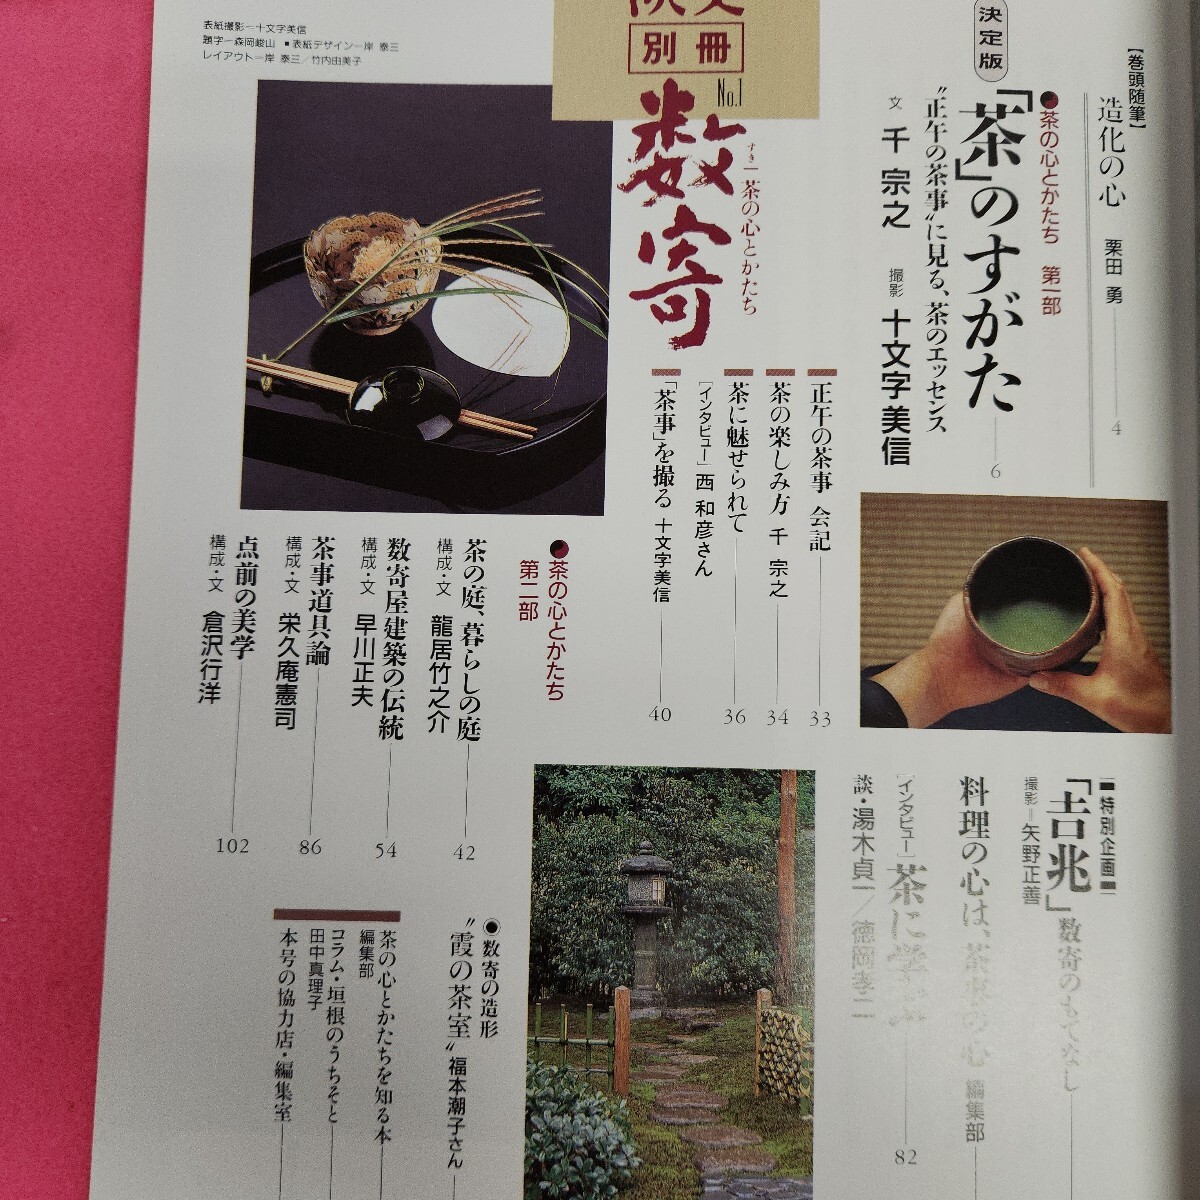 【巻頭随筆】
造化の心 栗田 勇 4
決定版
●茶の心とかたち 第一部
「茶」のすがた 6
“正午の茶事”に見る、茶のエッセンス
文 千 宗之 撮影 十文字美信
別冊
No.1
数寄
すき―茶の心とかたち
正午の茶事 会記 33
茶の楽しみ方 千 宗之 34
茶に魅せられて 36
[インタビュー]西 和彦さん
「茶事」を撮る 十文字美信 40
表紙撮影=十文字美信
題字=森岡峻山 ■表紙デザイン=岸 泰三
レイアウト=岸 泰三/竹内由美子
●茶の心とかたち
第二部
茶の庭、暮らしの庭 42
構成・文 龍居竹之介
数寄屋建築の伝統 54
構成・文 早川正夫
茶事道具論 86
構成・文 栄久庵憲司
点前の美学 102
構成・文 倉沢行洋
特別企画
「吉兆」数寄のもてなし
撮影=矢野正善
料理の心は、茶事の心 編集部
[インタビュー]茶に 82
談・湯木貞一/徳岡孝二
◉数寄の造形
“霞の茶室”福本潮子さん
茶の心とかたちを知る本
編集部
コラム・垣根のうちそと
田中真理子
本号の協力店・編集室